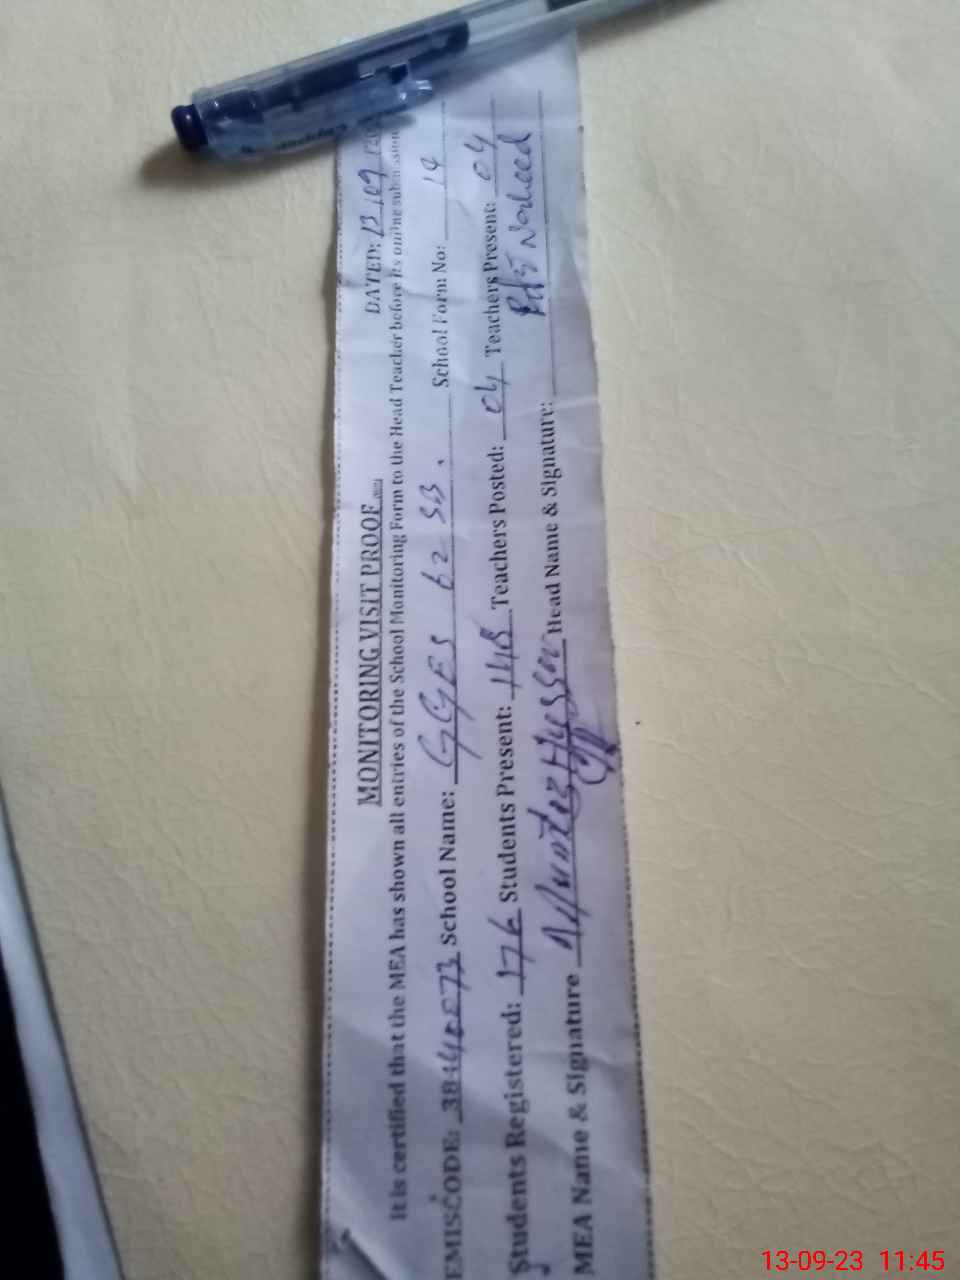 MONITORING VISIT PROOF
DATED: 13/09
It is certified that the MEA has shown all entries of the School Monitoring Form to the Head Teacher before its online submission
EMISCODE: School Name: GGES 62 SB. School Form No: 14
Students Registered: 176 Students Present: 148 Teachers Posted: 04 Teachers Present: 04
MEA Name & Signature Head Name & Signature:
13-09-23 11:45